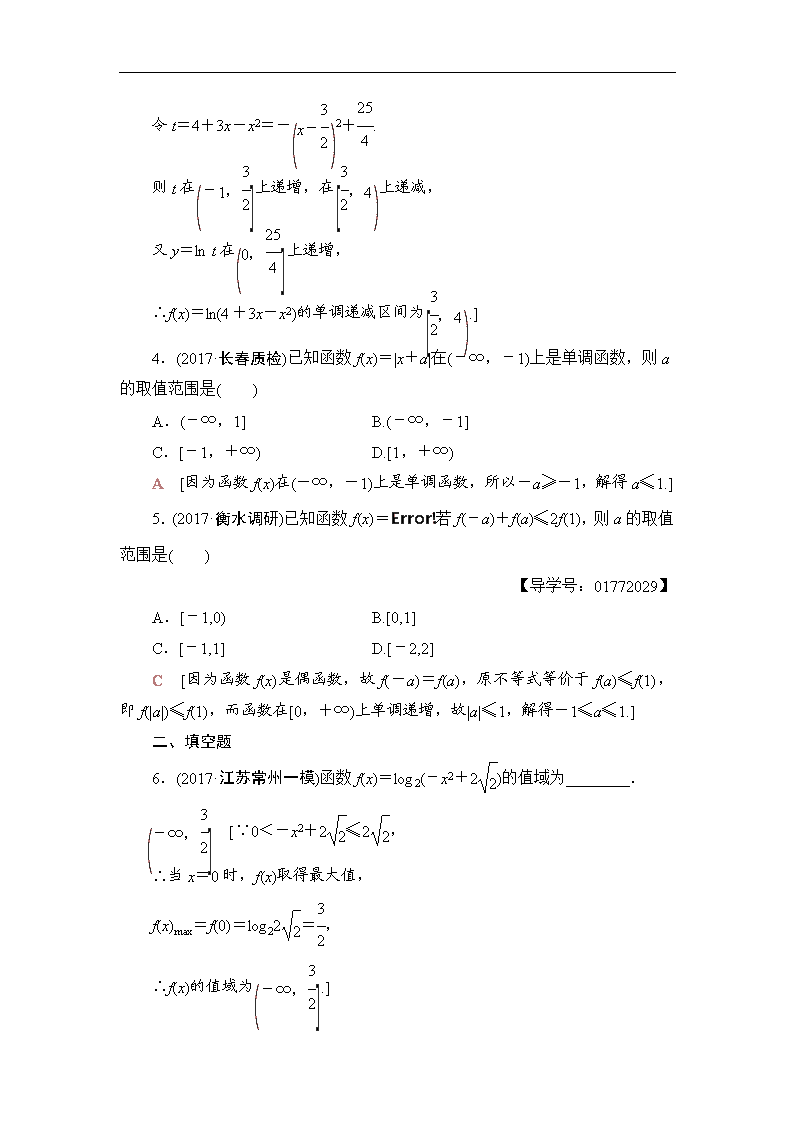 令 t＝4＋3x－x²＝－(x－3/2)²＋25/4.
则 t 在(－1，3/2]上递增，在[3/2，4)上递减，
又 y＝ln t 在(0，25/4]上递增，
∴f(x)＝ln(4＋3x－x²)的单调递减区间为[3/2，4).]
4．(2017·长春质检)已知函数 f(x)＝|x＋a|在(－∞，－1)上是单调函数，则 a
的取值范围是(　　)
A．(－∞，1]　　B.(－∞，－1]
C．[－1，＋∞)　　D.[1，＋∞)
A　[因为函数 f(x)在(－∞，－1)上是单调函数，所以－a≥－1，解得 a≤1.]
5．(2017·衡水调研)已知函数 f(x)＝Error!若 f(－a)＋f(a)≤2f(1)，则 a 的取值
范围是(　　)
【导学号：01772029】
A．[－1,0)　　B.[0,1]
C．[－1,1]　　D.[－2,2]
C　[因为函数 f(x)是偶函数，故 f(－a)＝f(a)，原不等式等价于 f(a)≤f(1)，
即 f(|a|)≤f(1)，而函数在[0，＋∞)上单调递增，故|a|≤1，解得－1≤a≤1.]
二、填空题
6．(2017·江苏常州一模)函数 f(x)＝log₂(－x²＋2√2)的值域为________．
(－∞，3/2]　[∵0＜－x²＋2√2≤2√2，
∴当 x＝0 时，f(x)取得最大值，
f(x)max＝f(0)＝log₂2√2＝3/2，
∴f(x)的值域为(－∞，3/2].]